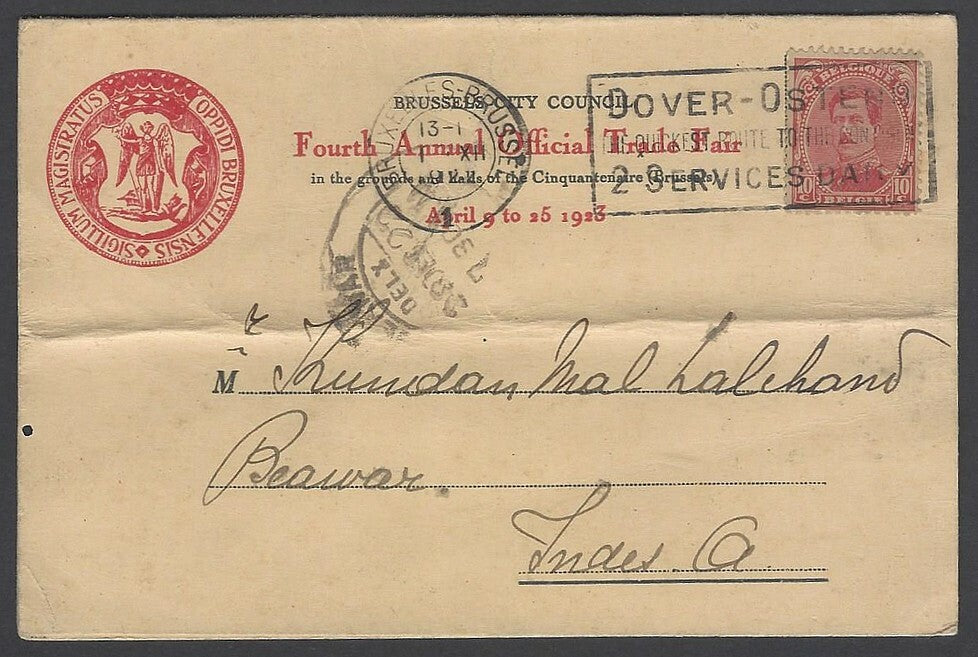 SIGILLUM MAGISTRATUS OPPIDI BRUXELLENSIS
BRUSSELS CITY COUNCIL
Fourth Annual Official Trade Fair
in the grounds and halls of the Cinquantenaire (Brussels)
April 9 to 25 1923
13-1
XII
1
DOVER-OSTEN
QUICKEST ROUTE TO THE CON
2 SERVICES DAILY
BELGIQUE
10 10
BELGIE
DELY
7 30
M r Kundan Mal Lalchand
Beawar.
Indes. A.